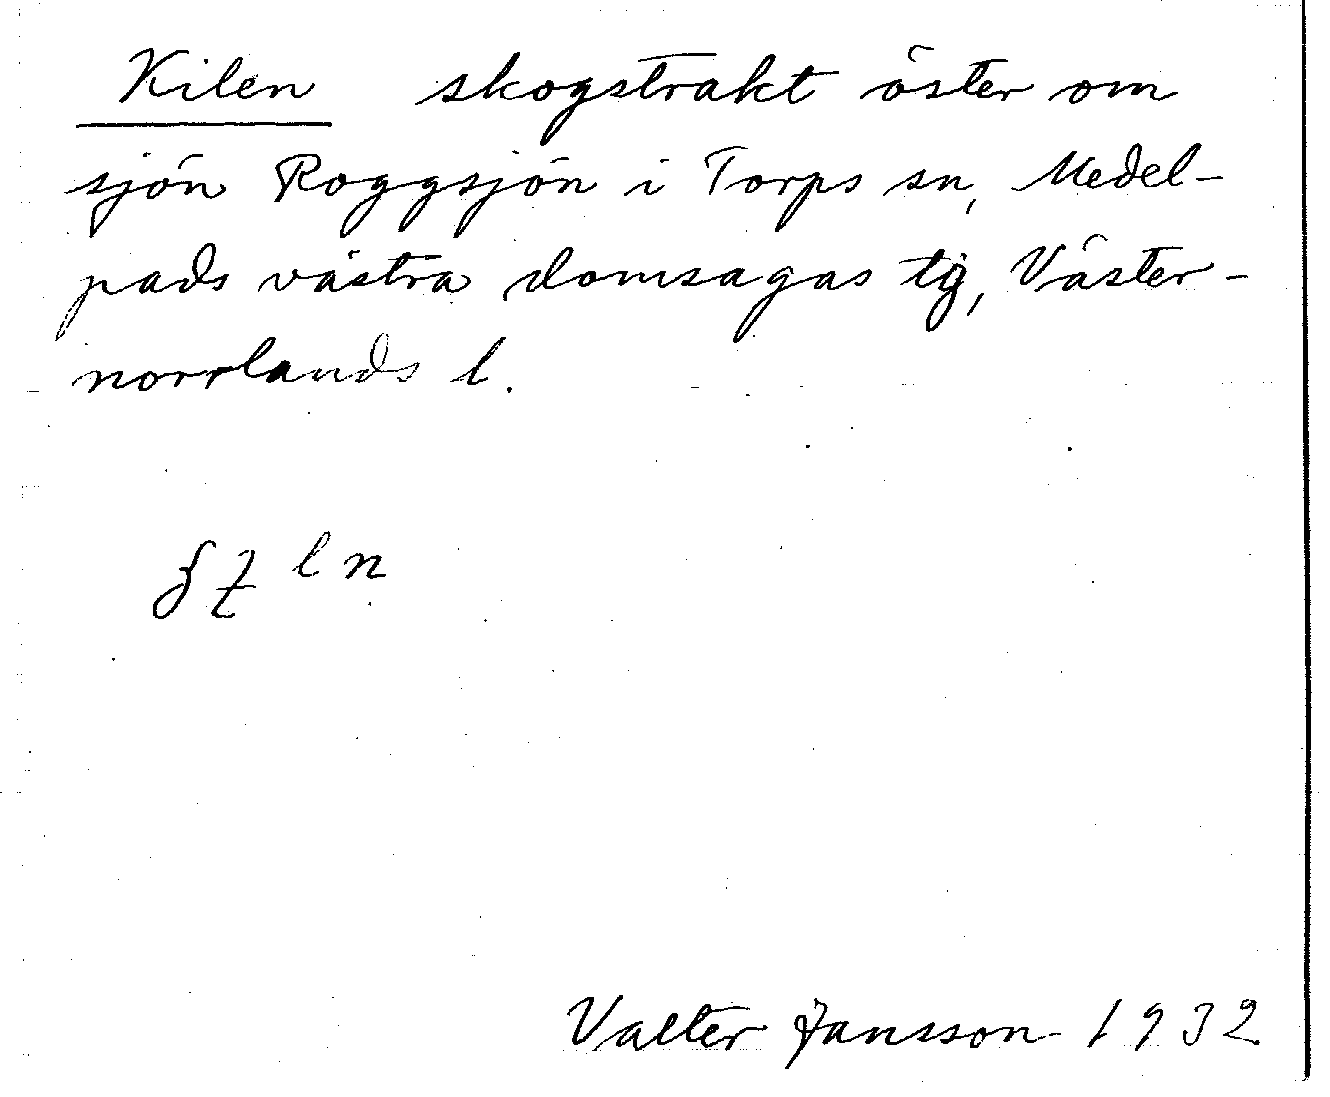 Kilen skogstrakt öster om
sjön Roggsjön i Torps sn, Medel-
pads västra domsagas tg, Väster-
norrlands l.
l n
Valter Jansson 1932